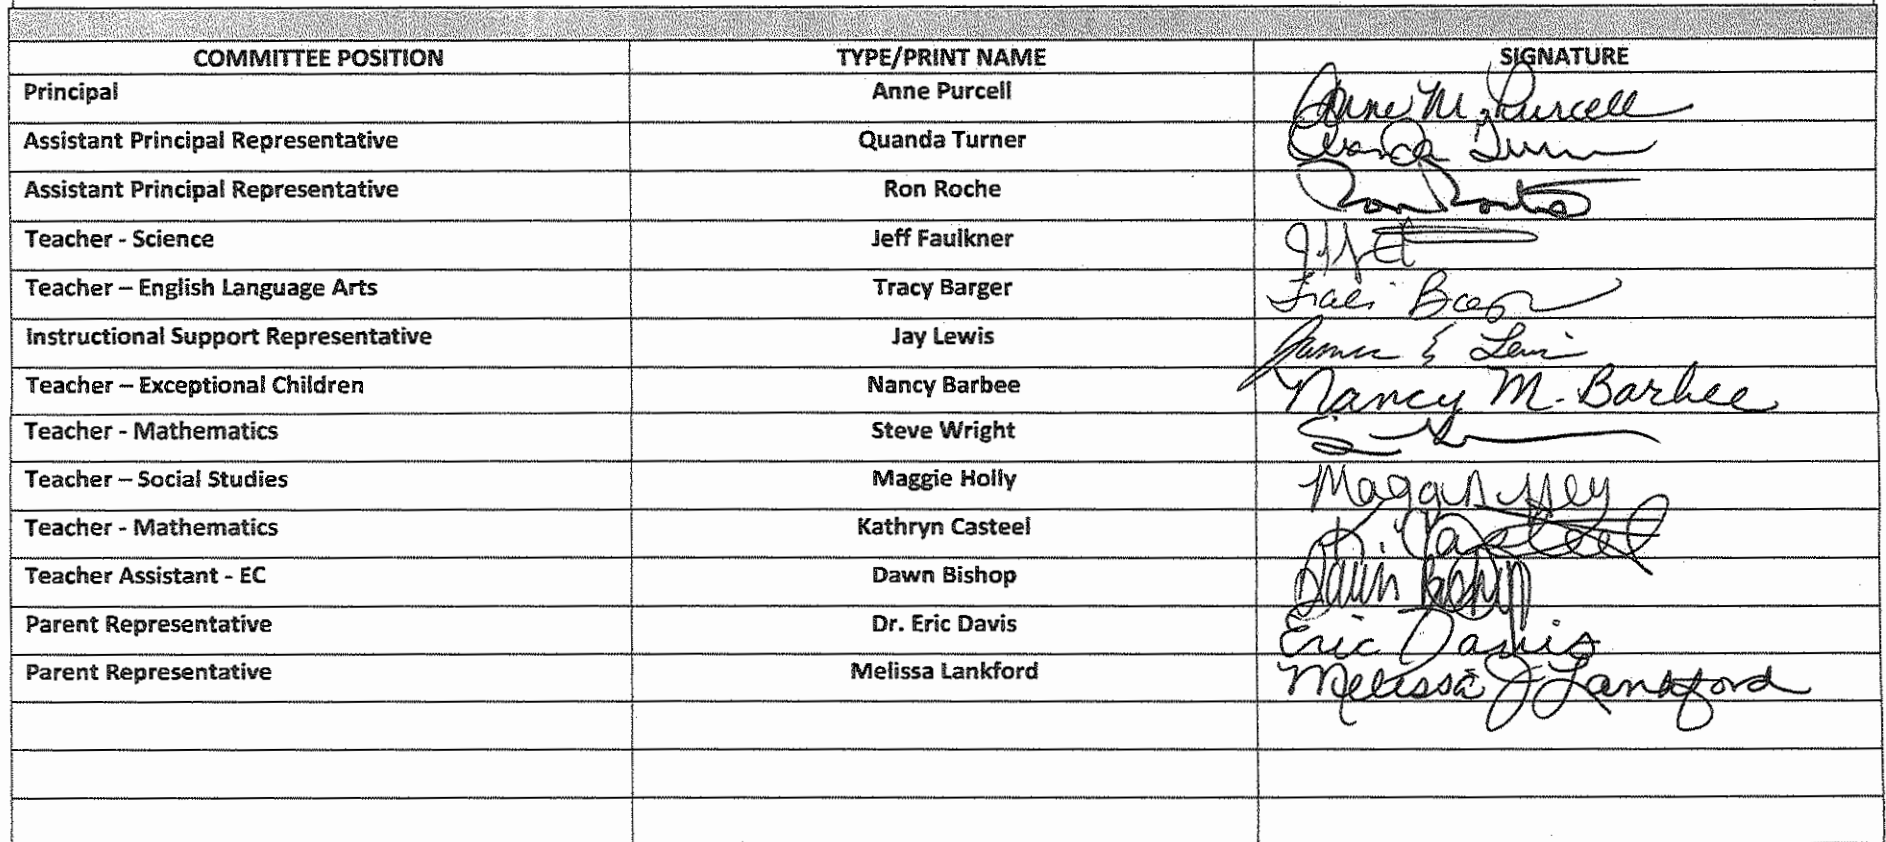 COMMITTEE POSITION TYPE/PRINT NAME SIGNATURE
Principal Anne Purcell Anne M. Purcell
Assistant Principal Representative Quanda Turner Quanda Turner
Assistant Principal Representative Ron Roche Ron
Teacher - Science Jeff Faulkner
Teacher – English Language Arts Tracy Barger
Instructional Support Representative Jay Lewis James E Lewis
Teacher – Exceptional Children Nancy Barbee Nancy M. Barbee
Teacher - Mathematics Steve Wright
Teacher – Social Studies Maggie Holly
Teacher - Mathematics Kathryn Casteel K. Casteel
Teacher Assistant - EC Dawn Bishop Dawn Bishop
Parent Representative Dr. Eric Davis Eric Davis
Parent Representative Melissa Lankford Melissa J Lankford